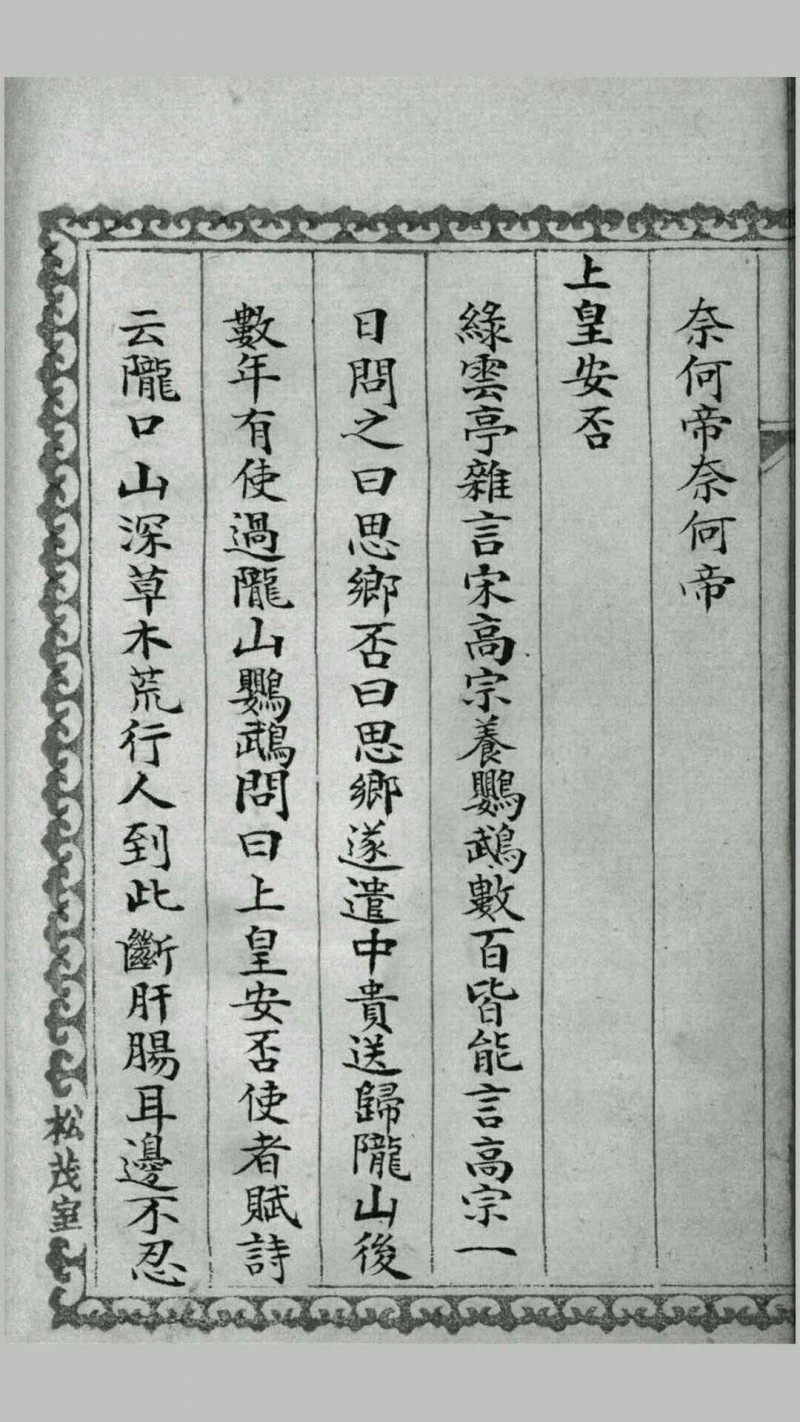 奈何帝奈何帝
上皇安否
綠雲亭雜言宋高宗養鸚鵡數百皆能言高宗一
日問之曰思鄉否曰思鄉遂遣中貴送歸隴山後
數年有使過隴山鸚鵡問曰上皇安否使者賦詩
云隴口山深草木荒行人到此斷肝腸耳邊不忍
松茂室